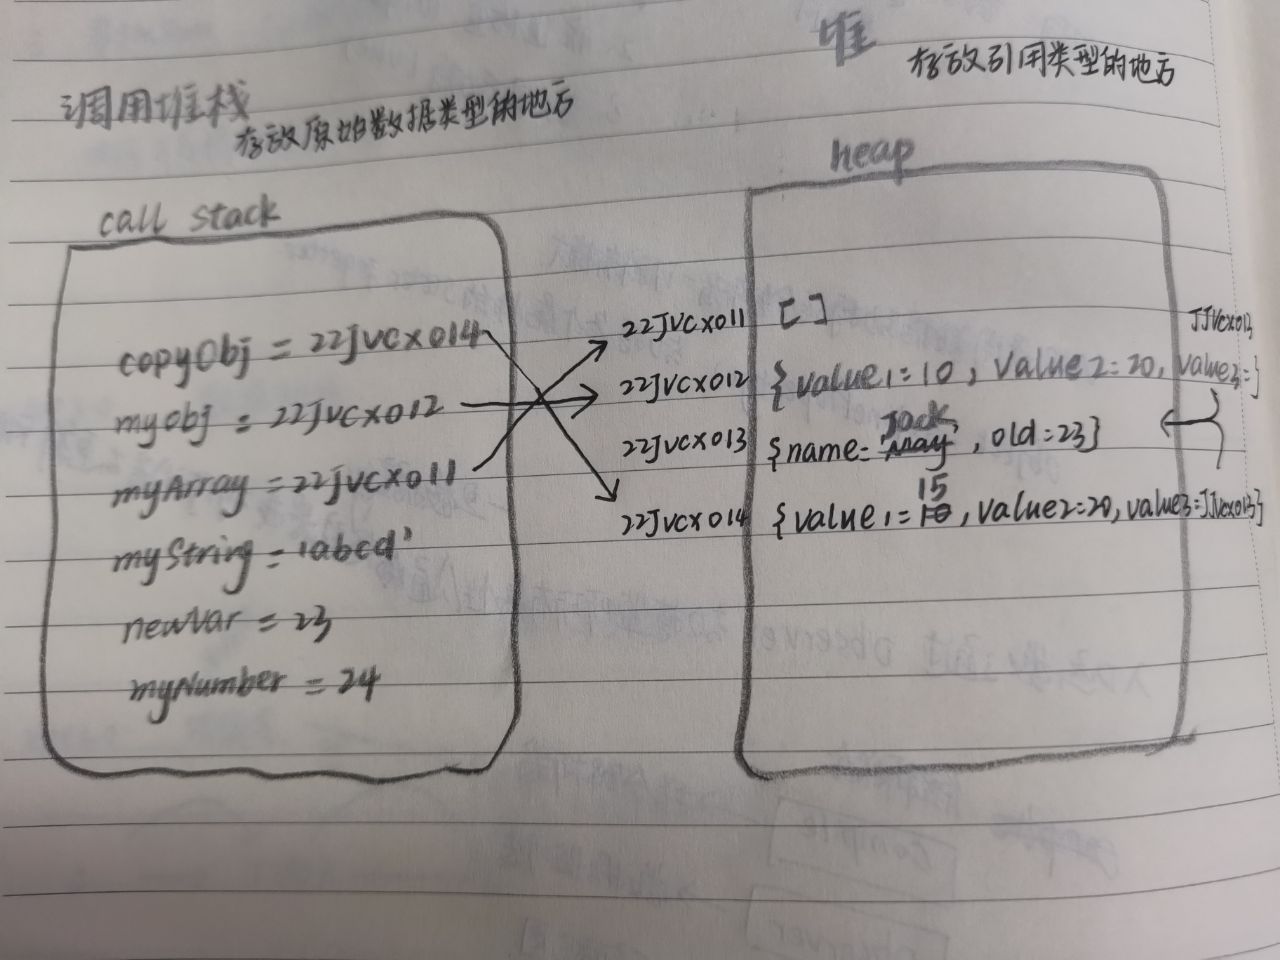 堆
存放引用类型的地方
调用堆栈
存放原始数据类型的地方
heap
call stack
copyObj = 22JVCX014
myObj = 22JVCX012
myArray = 22JVCX011
myString = 'abcd'
newVar = 23
myNumber = 24
22JVCX011 []
JJVCX013
22JVCX012 {value1=10, Value2=20, value3=}
Jack
22JVCX013 {name='May', old=23}
15
22JVCX014 {value1=10, value2=20, value3=JJVCX013}